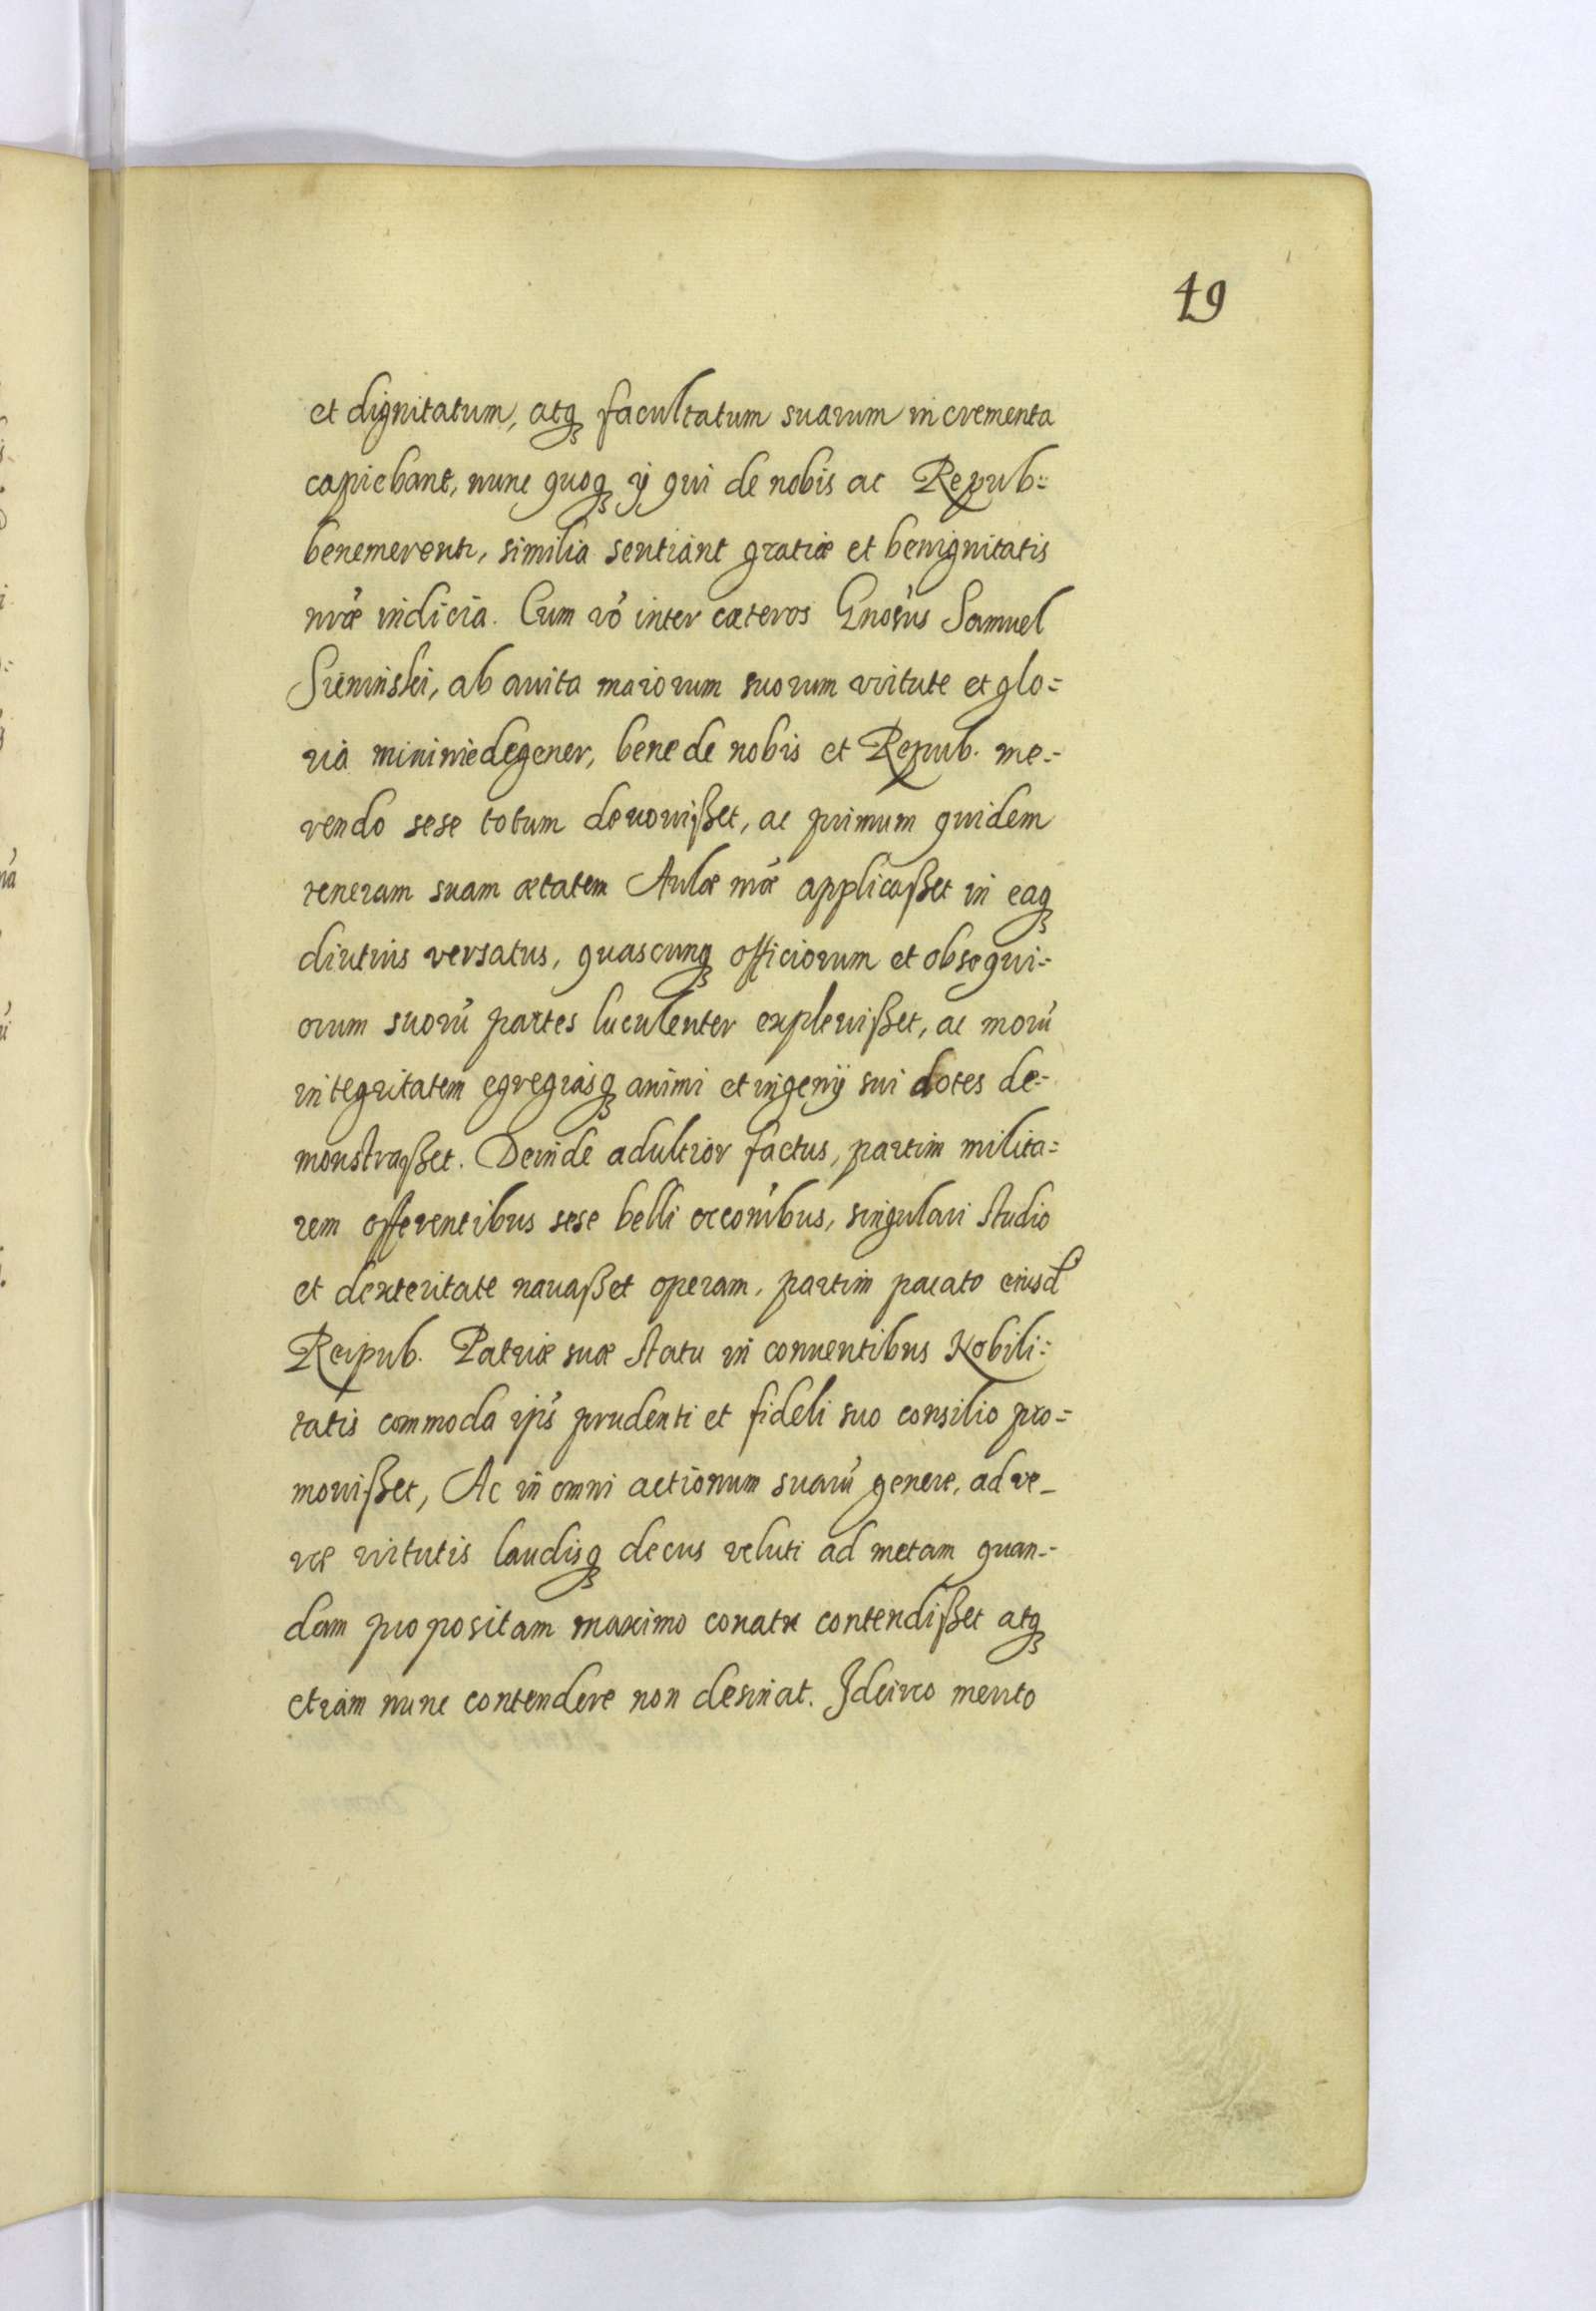 49
et dignitatum, atq; facultatum suarum incrementa
capiebant, nunc quoq; ij qui de nobis ac Repub:
benemerenti, similia sentiant gratiæ et benignitatis
nr̃æ indicia. Cum vo᷉ inter cæteros Gnosus Samuel
Sieninski, ab avita maiorum suorum virtute et glo=
ria minime degener, bene de nobis et Repub. me=
rendo sese totum devovißet, ac primum quidem
teneram suam ætatem Aulæ nr̃æ applicaßet in eaq;
diutius versatus, quascunq; officiorum et obsequi=
orum suorũ partes luculenter explevißet, ac morũ
integritatem egregiasq; animi et ingenij sui dotes de=
monstraßet. Deinde adultior factus, partim milita=
rem offerentibus sese belli occoñibus, singulari studio
et dexteritate navaßet operam, partim pacato eiusd
Reipub. Patriæ suæ statu in conventibus Nobili=
tatis commoda ipˢ prudenti et fideli suo consilio pro=
movißet, Ac in omni actionum suarũ genere, ad ve_
ræ virtutis laudisq; decus veluti ad metam quan=
dam propositam maximo conatu contendißet atq;
etiam nunc contendere non desinat. Idcirco merito